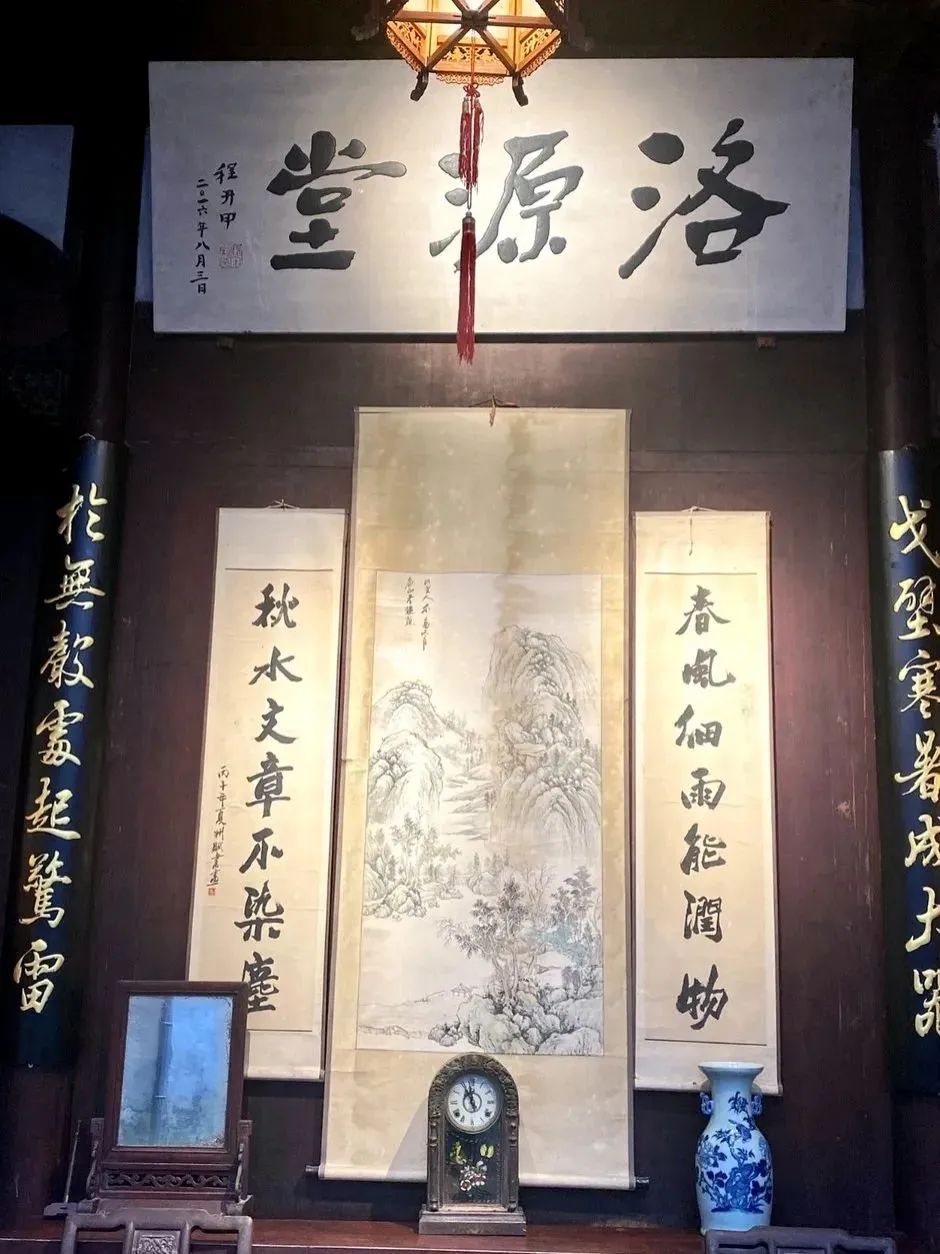 洛源堂
程开甲
二〇一六年八月三日
戈壁寒暑成大器
於無聲處起驚雷
春風細雨能潤物
秋水文章不染塵
丙子年夏